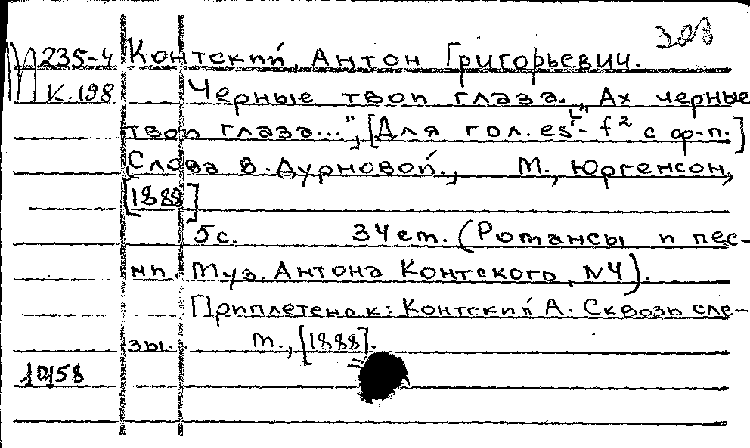 303
М 235-4 Контский, Антон Григорьевич.
К.198 Черные твои глаза. "Ах черные
твои глаза...", [Для гол. es¹-f² с ф-п.]
Слова В. Дурновой., М., Юргенсон,
[1888]
5с. 34ст. (Романсы и пес-
ни. Муз. Антона Контского, N4).
Приплетено к: Контский А. Сквозь сле-
зы. М., [1888].
10158